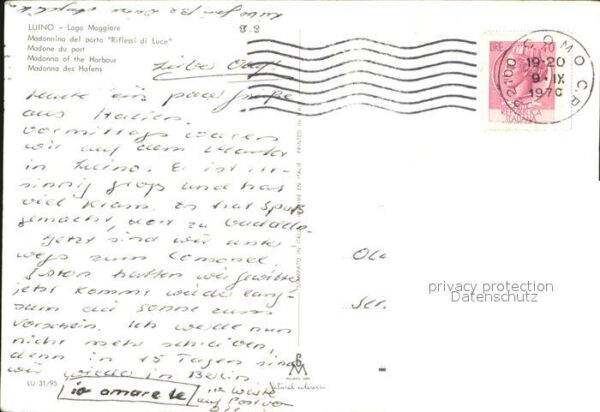 LUINO - Lago Maggiore
Madonnina del porto "Riflessi di Luce"
Madone du port
Madonna of the Harbour
Madonna des Hafens
Lieber Olaf!
Heute ein paar Grüße
aus Italien.
Vormittags waren
wir auf dem Markt
in Luino. Er ist irr-
sinnig groß und hat
viel Kram. Es hat Spaß
gemacht, dort zu
Jetzt sind wir unter-
wegs zum Comersee.
Gestern hatten wir Gewitter
jetzt kommt wieder lang-
sam die Sonne zum
Vorschein. Ich werde nun
nicht mehr schreiben,
denn in 15 Tagen sind
wir wieder in Berlin
io amare te
LU 31/95
COMO C.P.
22100
19-20
9-IX
1970
LIRE 40
ITALIANA
Ola
Str.
privacy protection
Datenschutz